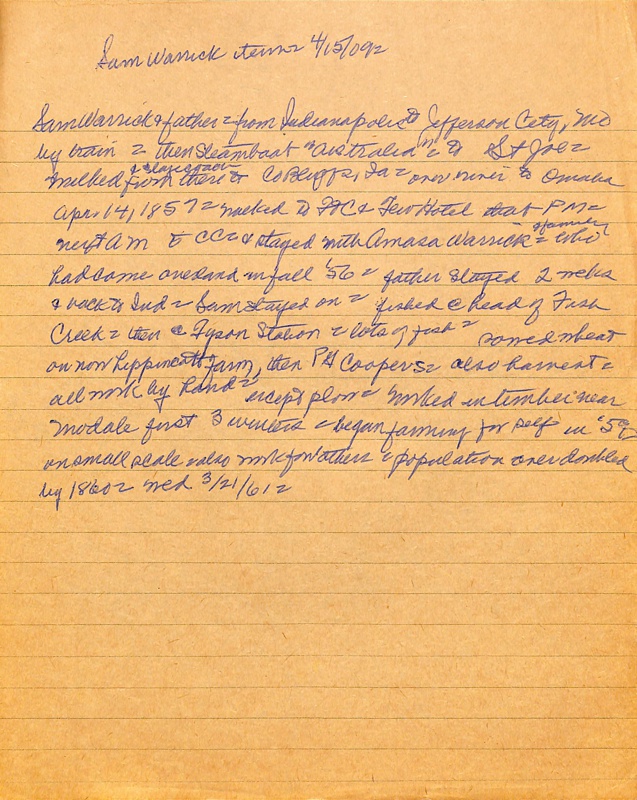 Sam Warrick items 4/15/09=
Sam Warrick & father = from Indianapolis to Jefferson City, Mo
by train = then steamboat "Australia" = to St Joe =
& stagecoach
walked from there to Co Bluffs, Ia = over river to Omaha
Apr. 14, 1857 = walked to Ft C & Few Hotel that PM =
& family
next AM to CC = & stayed with Amasa Warrick = who
had come overland in fall '56 = father stayed 2 weeks
& back to Ind = Sam stayed on = fished @ head of Fish
Creek = then @ Tyson Station = lots of fish = sowed wheat
on now farm, then PH Coopers = also harvest =
all work by hand = except plow = worked in timber near
Modale first 3 winters = began farming for self in '59
on small scale = also work for others = population over doubled
by 1860 = wed 3/21/61 =